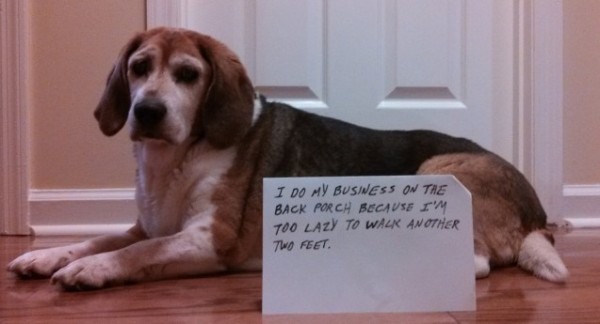 I DO MY BUSINESS ON THE
BACK PORCH BECAUSE I'M
TOO LAZY TO WALK ANOTHER
TWO FEET.